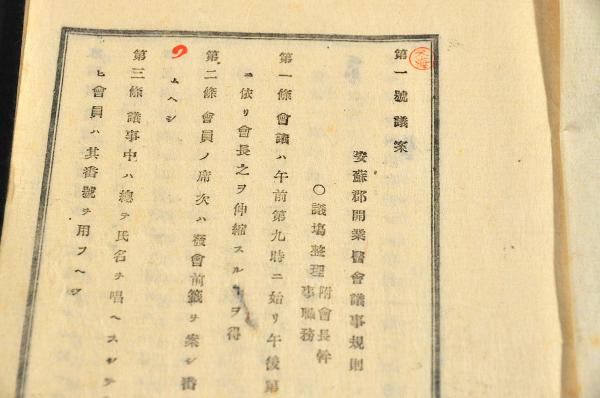 第一號議案
安蘇郡開業醫會議事規則
○議場整理附會長幹事職務
第一條會議ハ午前第九時ニ始リ午後第
ニ依リ會長之ヲ伸縮スルヿヲ得
第二條會員ノ席次ハ發會前籤ヲ案シ番
ムヘシ
第三條議事中ハ總テ氏名ヲ唱ヘスシテ
ヒ會員ハ其番號ヲ用フヘシ